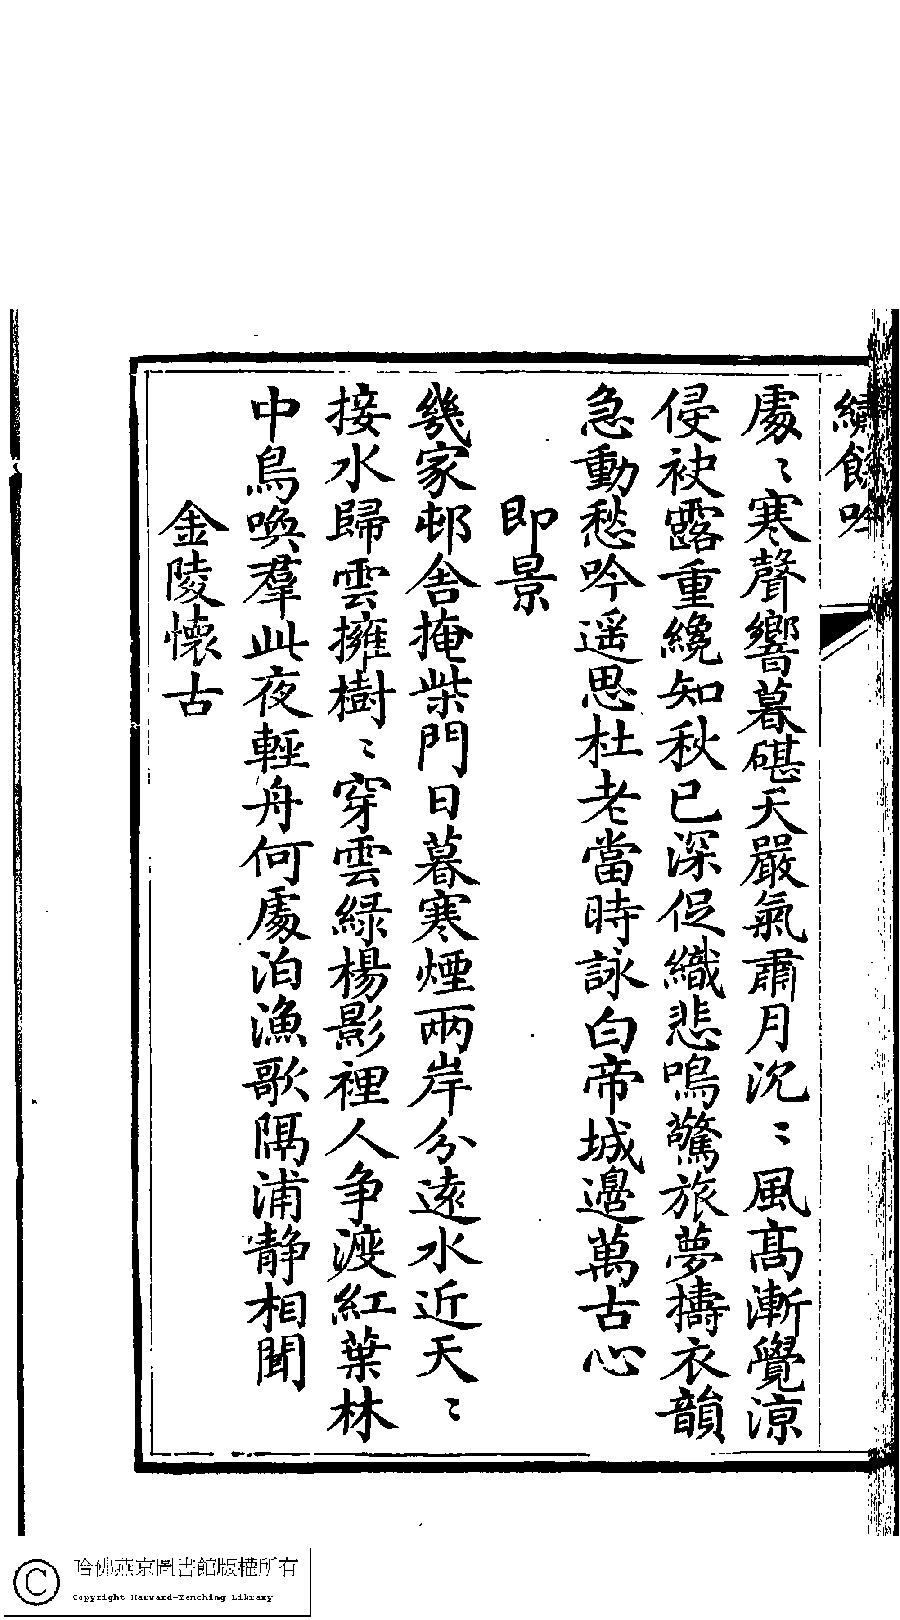 繡餘吟
處〻寒聲響暮碪天嚴氣肅月沉〻風高漸覺涼
侵袂露重纔知秋已深促織悲鳴驚旅夢擣衣韻
急動愁吟遥思杜老當時詠白帝城邉萬古心
即景
幾家邨舍掩柴門日暮寒煙兩岸分遠水近天〻
接水歸雲擁樹〻穿雲緑楊影裡人争渡紅葉林
中鳥喚羣此夜輕舟何處泊漁歌隔浦靜相聞
金陵懷古
哈佛燕京圖書館版權所有
Copyright Harvard-Yenching Library